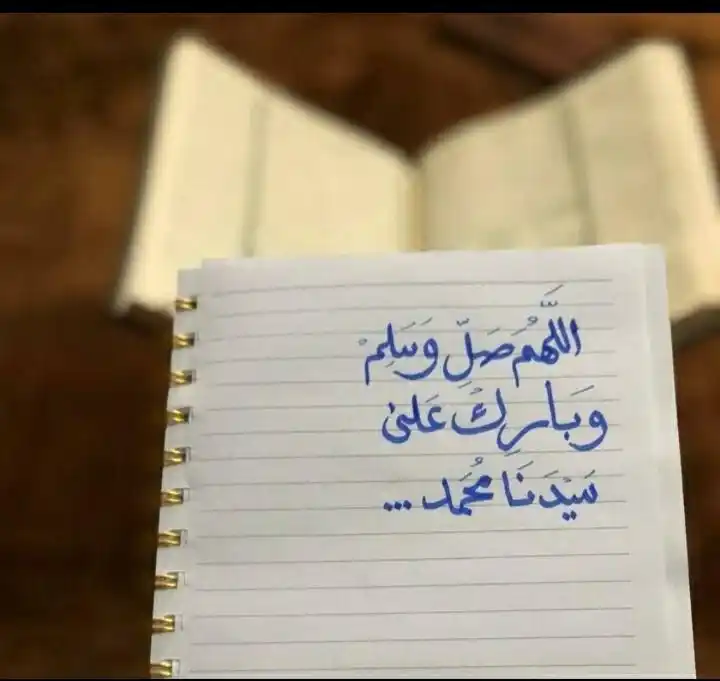 اللَّهُمَ صَلِّ وَسَلِمْ
وَبَارِكْ عَلىٰ
سَيْدَنَا مُحَمد ...